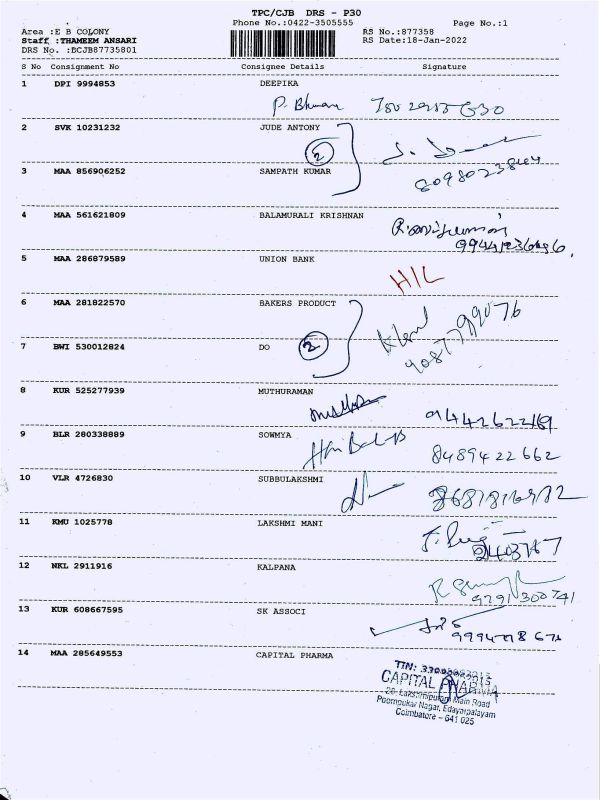 TPC/CJB DRS - P30
Phone No.:0422-3505555
Page No.:1
Area :E B COLONY
RS No.:877358
Staff :THAMEEM ANSARI
RS Date:18-Jan-2022
DRS No. :BCJB87735801
S No Consignment No Consignee Details Signature
1 DPI 9994853 DEEPIKA
P. Bhuvan
2 SVK 10231232 JUDE ANTONY
2
3 MAA 856906252 SAMPATH KUMAR
8098023844
4 MAA 561621809 BALAMURALI KRISHNAN
5 MAA 286879589 UNION BANK
H/L
6 MAA 281822570 BAKERS PRODUCT
9087799076
7 BWI 530012824 DO
2
8 KUR 525277939 MUTHURAMAN
94442622469
9 BLR 280338889 SOWMYA
8489422662
10 VLR 4726830 SUBBULAKSHMI
11 KMU 1025778 LAKSHMI MANI
12 NKL 2911916 KALPANA
9791300741
13 KUR 608667595 SK ASSOCI
14 MAA 285649553 CAPITAL PHARMA
CAPITAL PHARMA
Main Road
Poompukar Nagar, Edayarpalayam
Coimbatore - 641 025